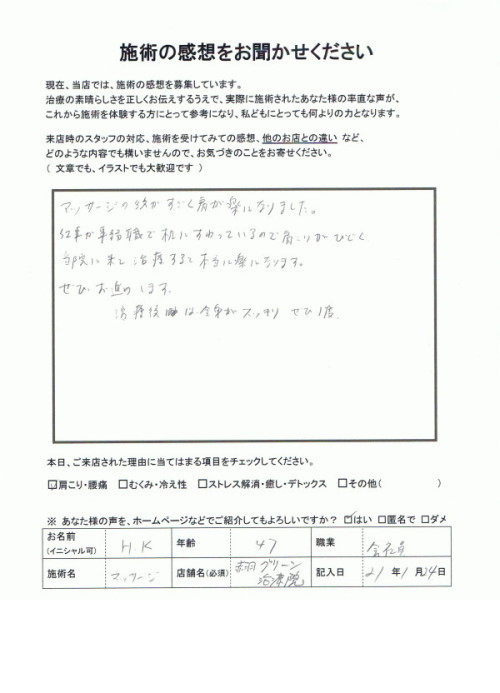 施術の感想をお聞かせください
現在、当店では、施術の感想を募集しています。
治療の素晴らしさを正しくお伝えするうえで、実際に施術されたあなた様の率直な声が、
これから施術を体験する方にとって参考になり、私どもにとっても何よりの力となります。
来店時のスタッフの対応、施術を受けてみての感想、他のお店との違い など、
どのような内容でも構いませんので、お気づきのことをお寄せください。
( 文章でも、イラストでも大歓迎です )
マッサージの後がすごく肩が楽になりました。
仕事が事務職で机にすわっているので肩こりがひどく
当院に来て治療すると本当に楽になります。
ぜひ、お進めします。
治療後は、全身がスッキリ ぜひ1度、
本日、ご来店された理由に当てはまる項目をチェックしてください。
☑肩こり・腰痛 □むくみ・冷え性 □ストレス解消・癒し・デトックス □その他( )
※ あなた様の声を、ホームページなどでご紹介してもよろしいですか? ☑はい □匿名で □ダメ
お名前 (イニシャル可) H.K 年齢 47 職業 会社員
施術名 マッサージ 店舗名(必須) グリーン治療院 記入日 21年1月24日